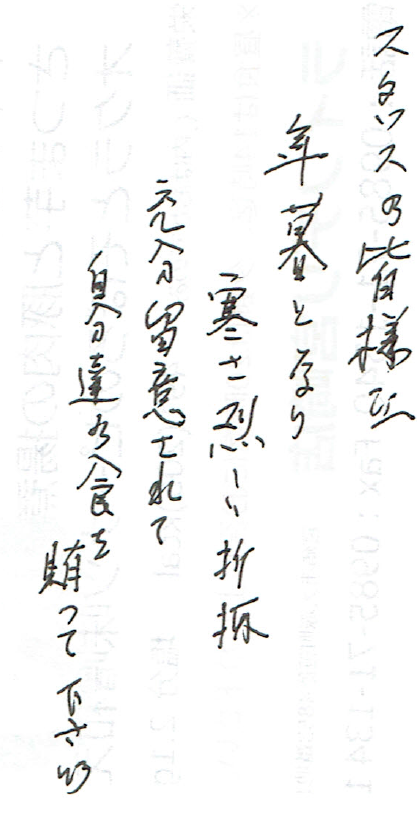 スタッフの皆様
年暮となり
寒さ烈しい折柄
充分留意されて
自分達の食を賄って下さい